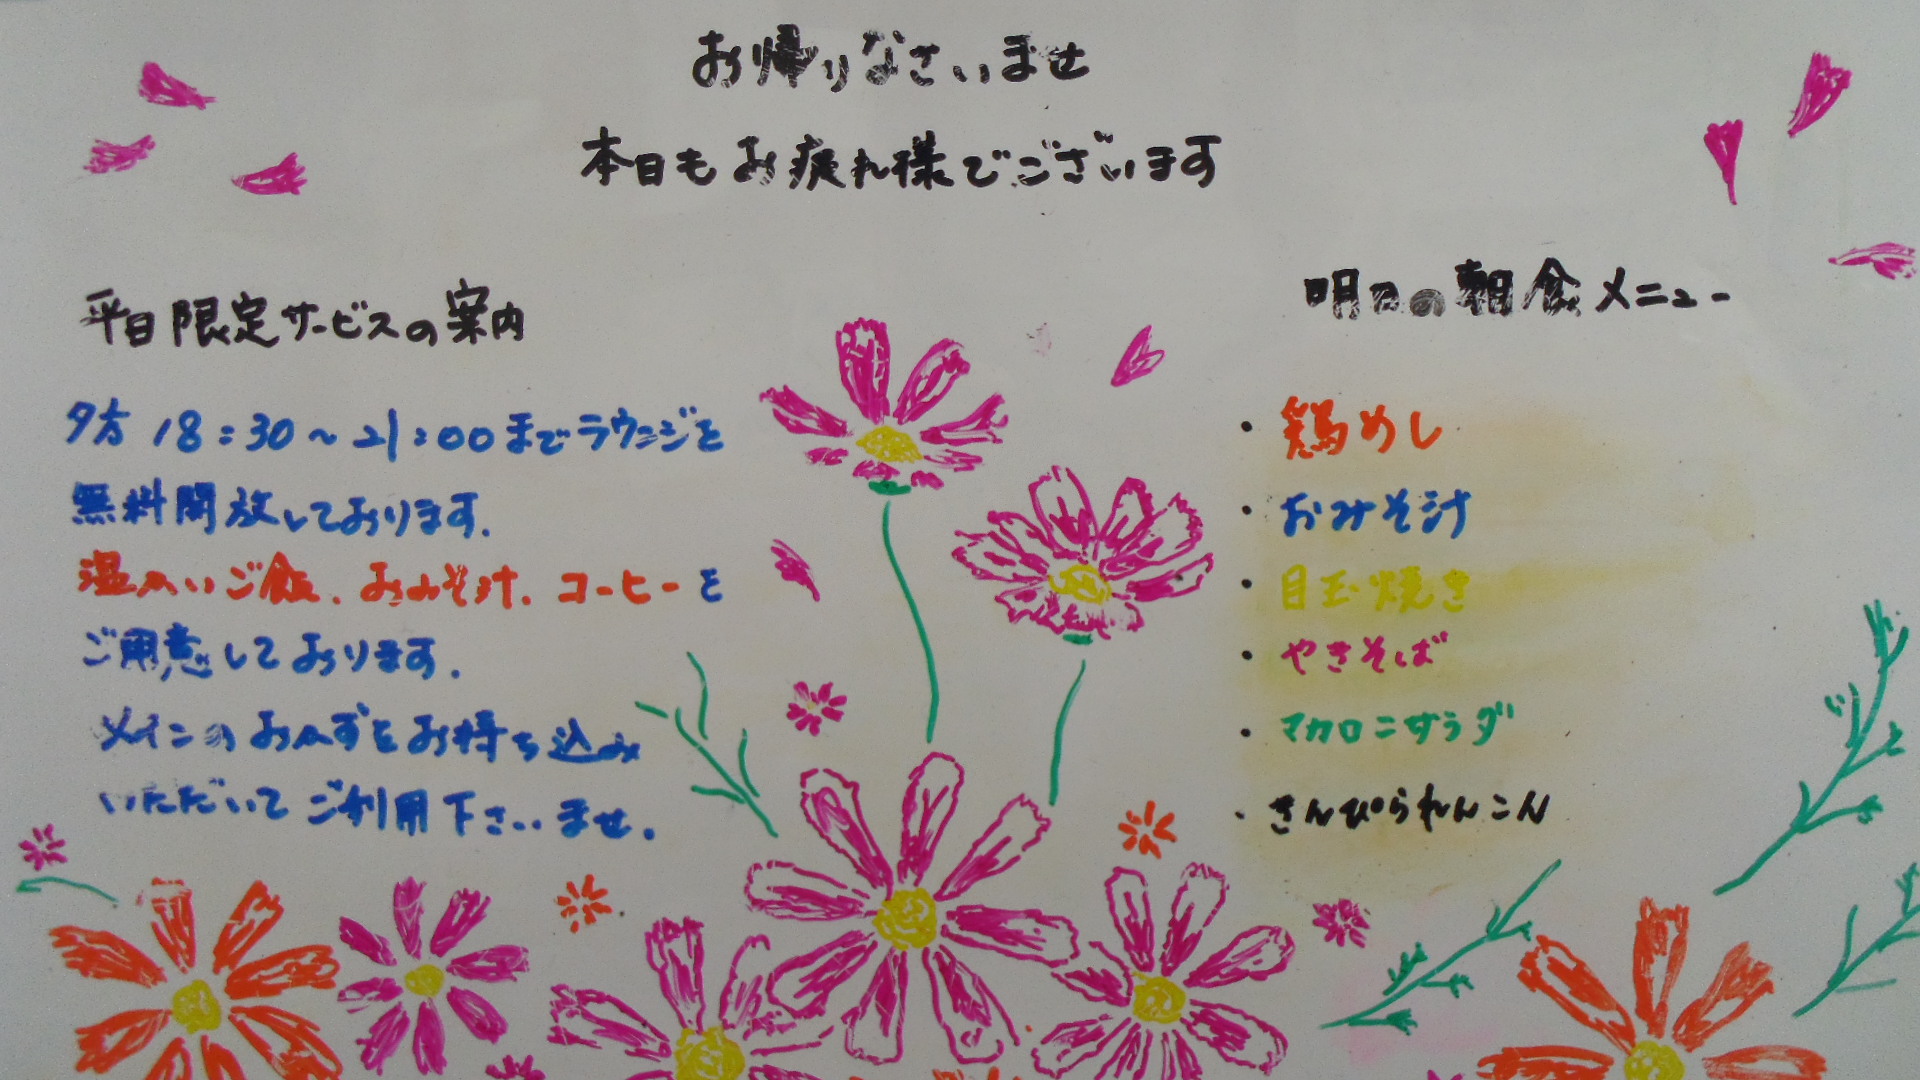 お帰りなさいませ
本日もお疲れ様でございます
平日限定サービスの案内
夕方 18:30〜21:00までラウンジを
無料開放しております.
温かいご飯、おみそ汁、コーヒーを
ご用意しております.
メインのおかずをお持ち込み
いただいてご利用下さいませ.
明日の朝食メニュー
・鶏めし
・おみそ汁
・目玉焼き
・やきそば
・マカロニサラダ
・きんぴられんこん